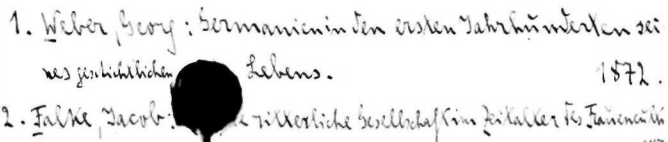 1. Weber, Georg: Germanien in den ersten Jahrhunderten sei-
nes geschichtlichen Lebens. 1872.
2. Falke, Jacob: ritterliche Gesellschaft im Zeitalter des Frauencults